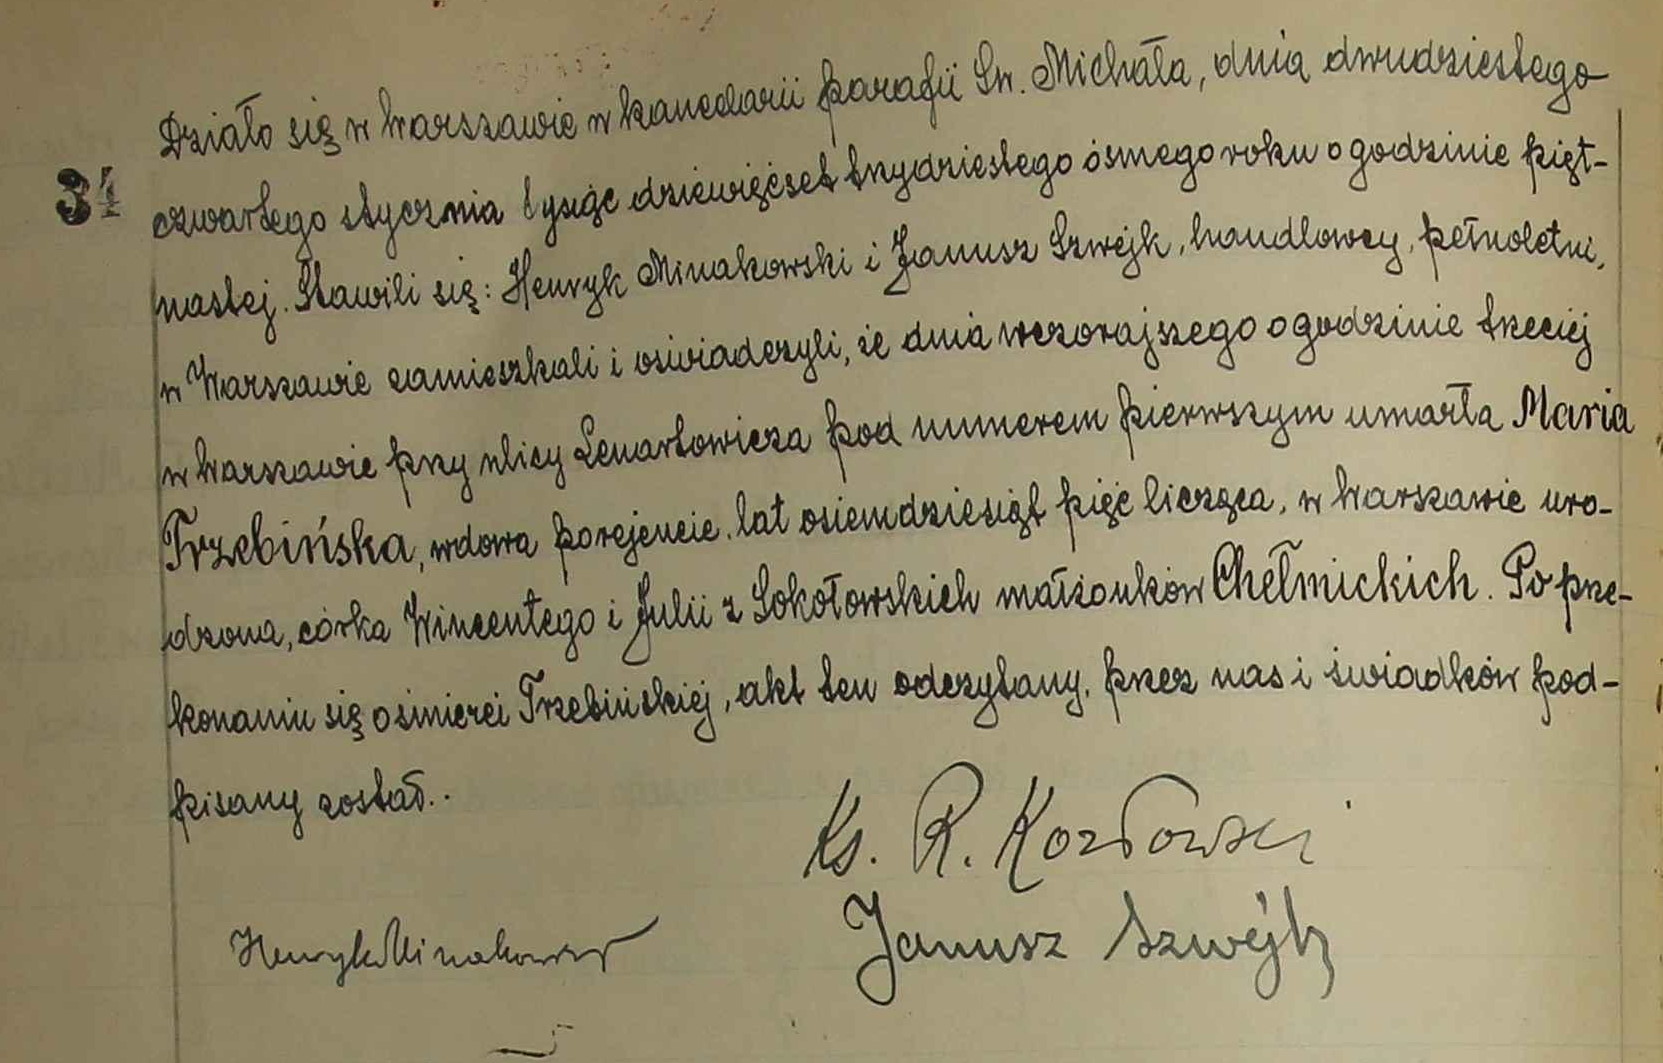 Działo się w Warszawie w kancelarii parafii Św. Michała, dnia dwudziestego
34
czwartego stycznia tysiąc dziewięćset trzydziestego ósmego roku o godzinie pięt-
nastej. Stawili się: Henryk Minakowski i Janusz Szwejk, handlowcy, pełnoletni,
w Warszawie zamieszkali i oświadczyli, że dnia wczorajszego o godzinie trzeciej
w Warszawie przy ulicy Lenartowicza pod numerem pierwszym umarła Maria
Trzebińska, wdowa po rejencie, lat osiemdziesiąt pięć licząca, w Warszawie uro-
dzona, córka Wincentego i Julii z Sokołowskich małżonków Chełmickich. Po prze-
konaniu się o śmierci Trzebińskiej, akt ten odczytany, przez nas i świadków pod-
pisany został..
Ks. R. Kozłowski
Henryk Minakowski
Janusz Szwejk